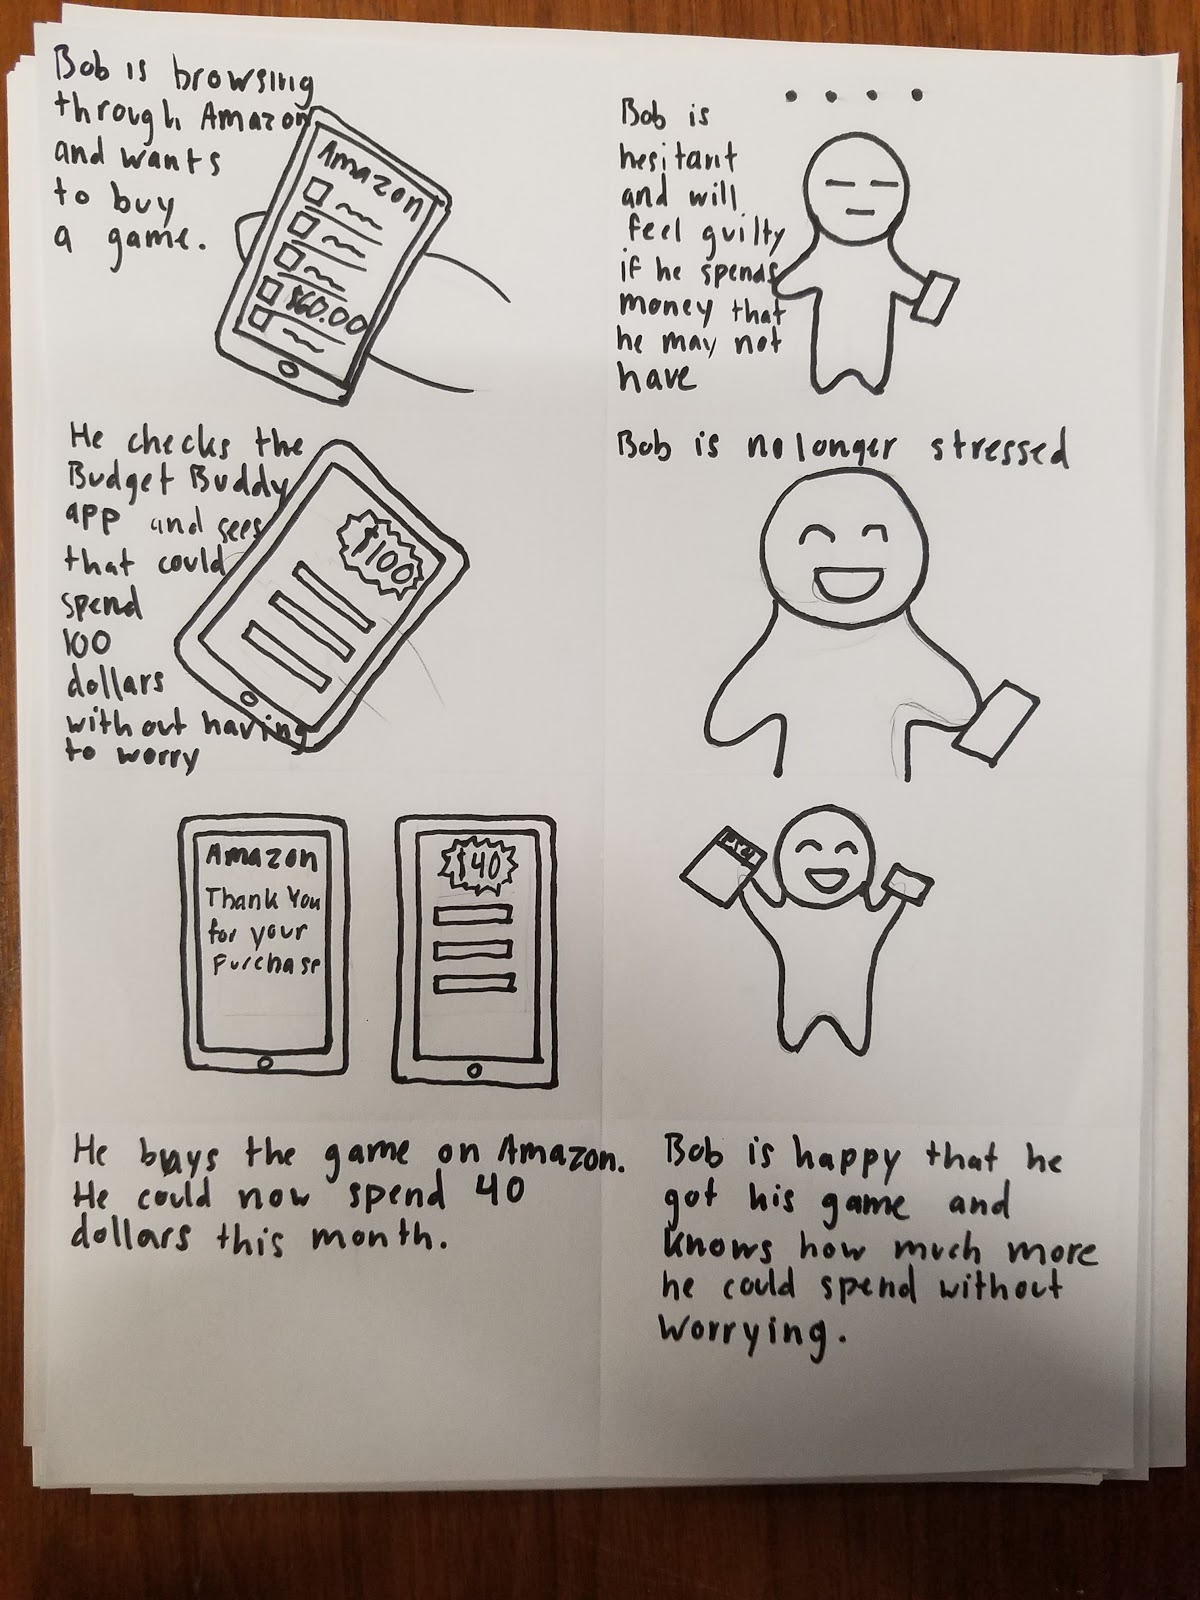 Bob is browsing
through Amazon
and wants
to buy
a game.
Amazon
$60.00
Bob is
hesitant
and will
feel guilty
if he spends
money that
he may not
have
He checks the
Budget Buddy
app and sees
that could
spend
100
dollars
without having
to worry
$100
Bob is no longer stressed
Amazon
Thank You
for your
Purchase
$40
He buys the game on Amazon.
He could now spend 40
dollars this month.
Bob is happy that he
got his game and
knows how much more
he could spend without
worrying.